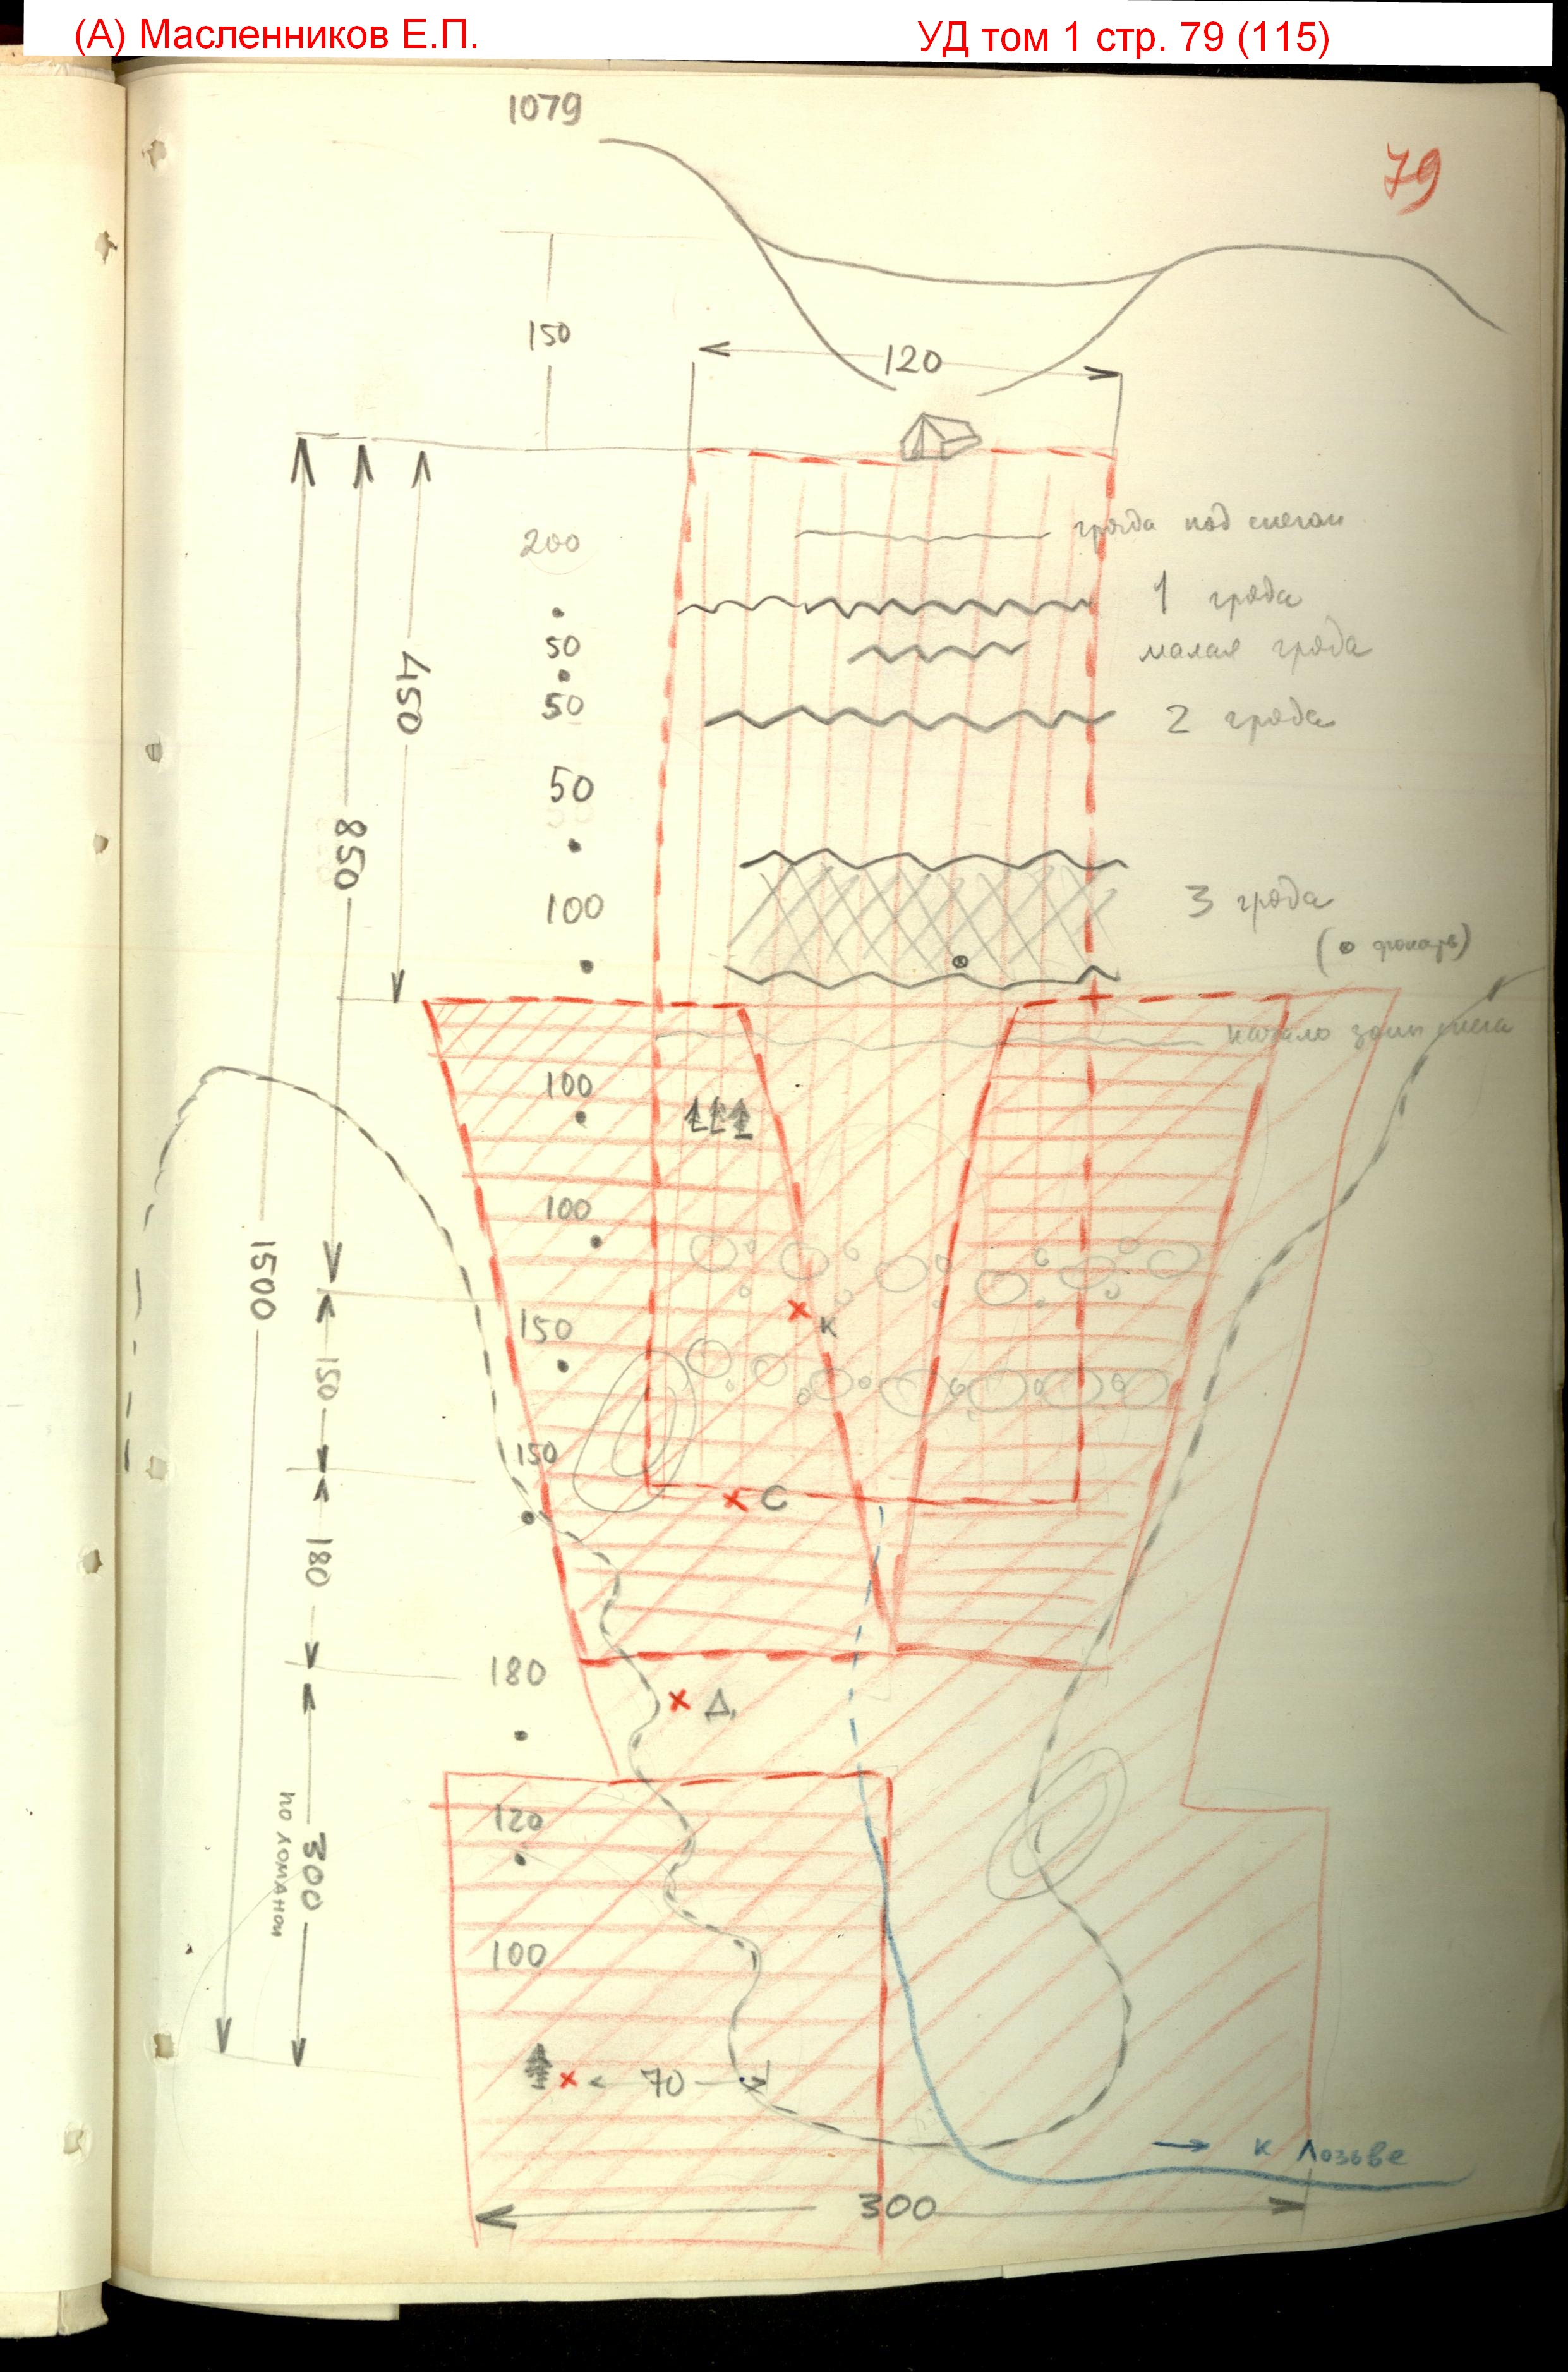 (А) Масленников Е.П.
УД том 1 стр. 79 (115)
1079
79
150
120
200
гряда под снегом
1 гряда
50
малая гряда
450
50
2 гряда
50
850
100
3 гряда
(⊙ фонарь)
начало зоны снега
100
100
1500
150
К
150
150
С
180
180
Д
120
300
по ломаной
100
70
к Лозьве
300